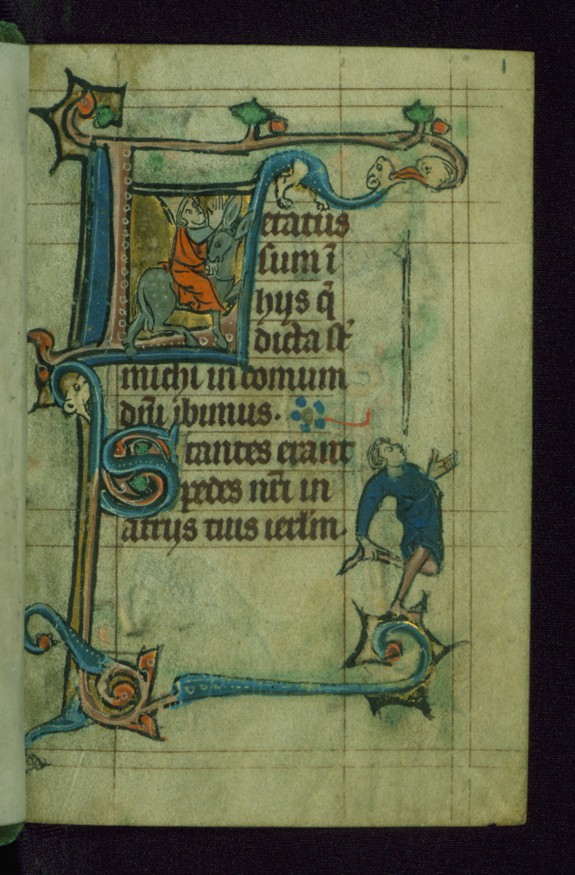 Letatus
sum ī
hijs q̄
dicta st̄
michi in domum
dn̄i ibimus.
Stantes erant
pedes nr̄i in
atrijs tuis ierlm̄.